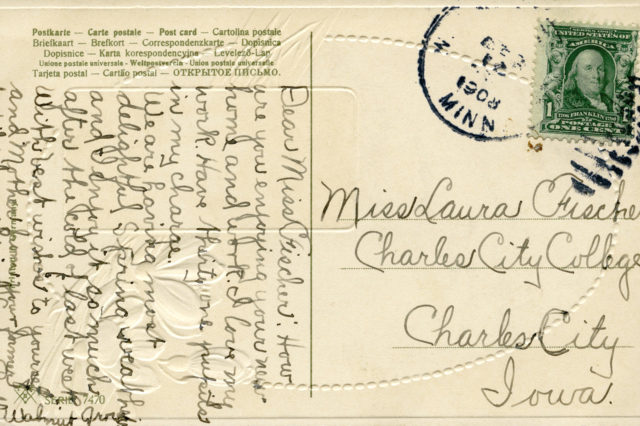 Postkarte — Carte postale — Post card — Cartolina postale
Briefkaart — Brefkort — Correspondenzkarte — Dopisnica
Dopisnice — Karta korespondencyjna — Levelező-Lap
Unione postale universale - Weltpostverein - Union postale universelle
Tarjeta postal — Cartão postal — ОТКРЫТОЕ ПИСЬМО.
MINN
1908
1706 FRANKLIN 1790
1 1
POSTAGE
ONE CENT
Dear Miss Fischer: How
are you enjoying your new
home and work. I love my
work. Have thirty one pupils
in my charge.
We are having most
delightful Spring weather
and I enjoy it so much
after the cold of last week
With best wishes to yourself
and Mother
Walnut Grove
Miss Laura Fische
Charles City College
Charles City
Iowa.
SERIE 7470